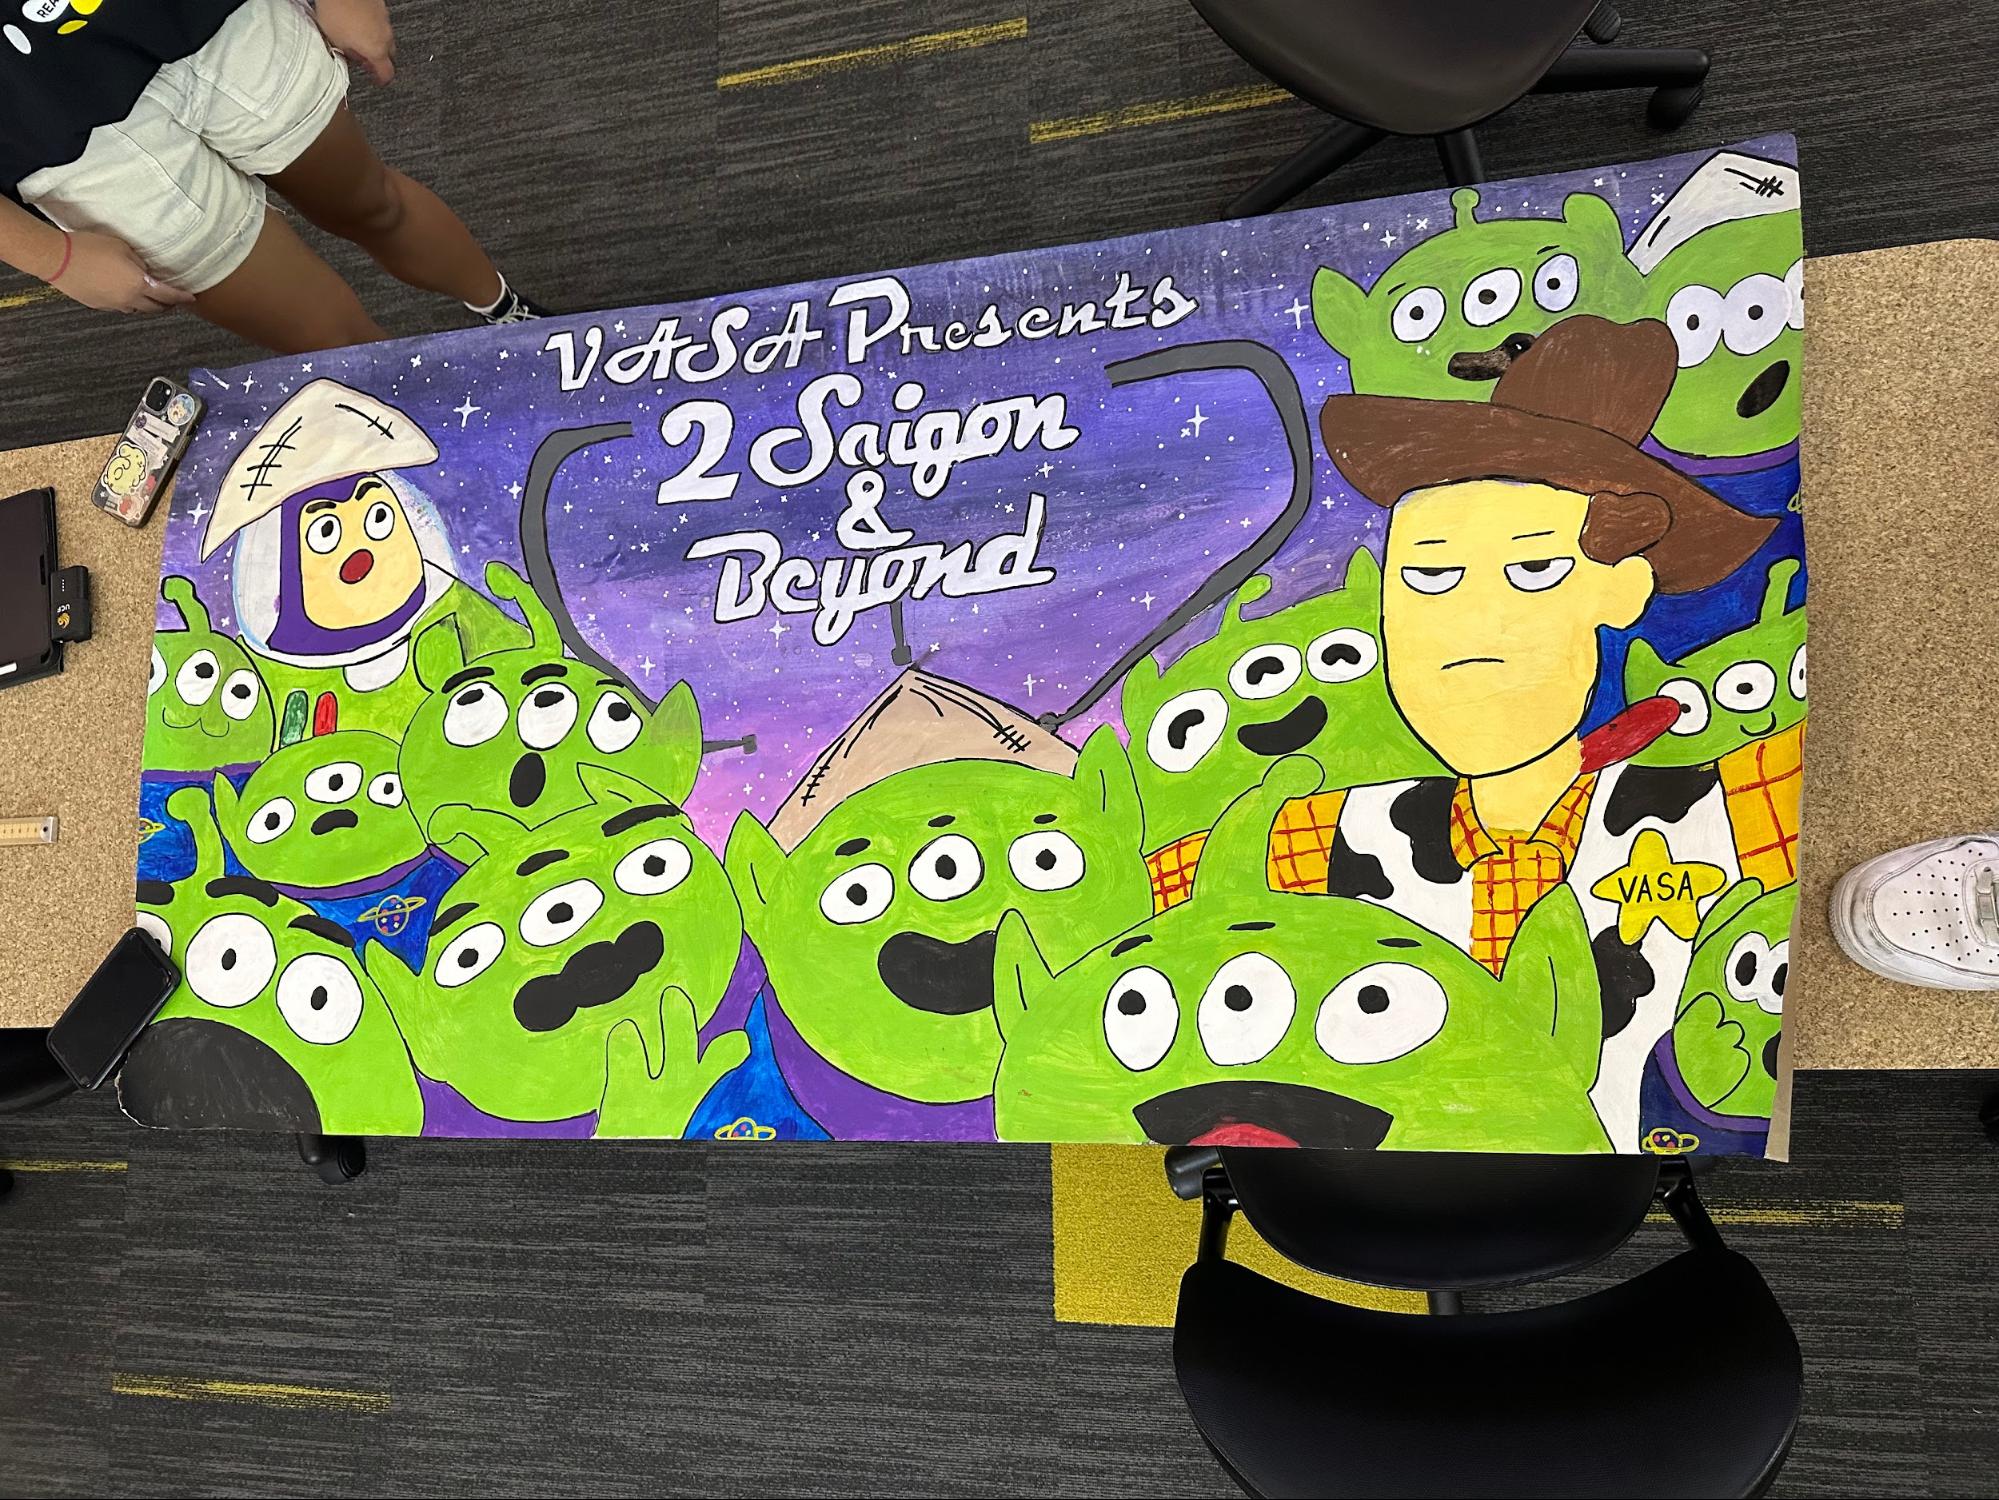 VASA Presents
2 Saigon
&
Beyond
VASA
UCF